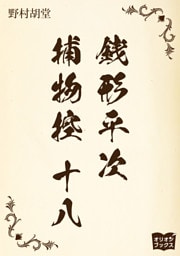 野村胡堂
銭形平次
捕物控 十八
オリオン
ブックス